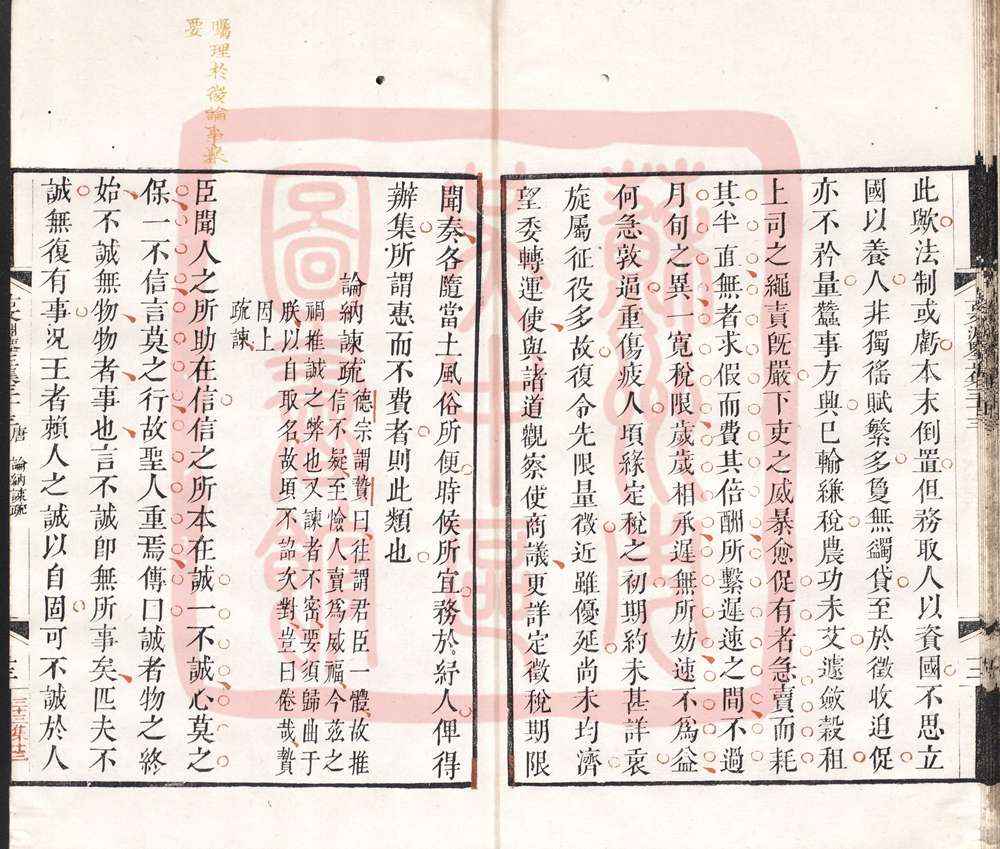 此歟法制或虧本末倒置但務取人以資國不思立
國以養人非獨徭賦繁多夐無蠲貸至於徵收迫促
亦不矜量蠶事方興已輸縑稅農功未艾遽斂穀租
上司之繩責既嚴下吏之威暴愈促有者急賣而耗
其半直無者求假而費其倍酬所繫遲速之間不過
月旬之異一寬稅限歲歲相承遲無所妨速不為益
何急敦逼重傷疲人頃緣定稅之初期約未甚詳衷
旋屬征役多故復令先限量徵近雖優延尚未均濟
望委轉運使與諸道觀察使商議更詳定徵稅期限
聞奏各隨當土風俗所便時候所宜務於紓人俾得
辦集所謂惠而不費者則此類也
論納諫疏
德宗謂贄曰往謂君臣一體故推
信不疑至憸人賣為威福今茲之
禍推誠之弊也又諫者不密要須歸曲于
朕以自取名故頃不詔次對豈曰倦哉贄
因上
疏諫
臣聞人之所助在信信之所本在誠一不誠心莫之
保一不信言莫之行故聖人重焉傳曰誠者物之終
始不誠無物物者事也言不誠即無所事矣匹夫不
誠無復有事況王者賴人之誠以自固可不誠於人
囑理於後論事最
要
唐
論納諫疏